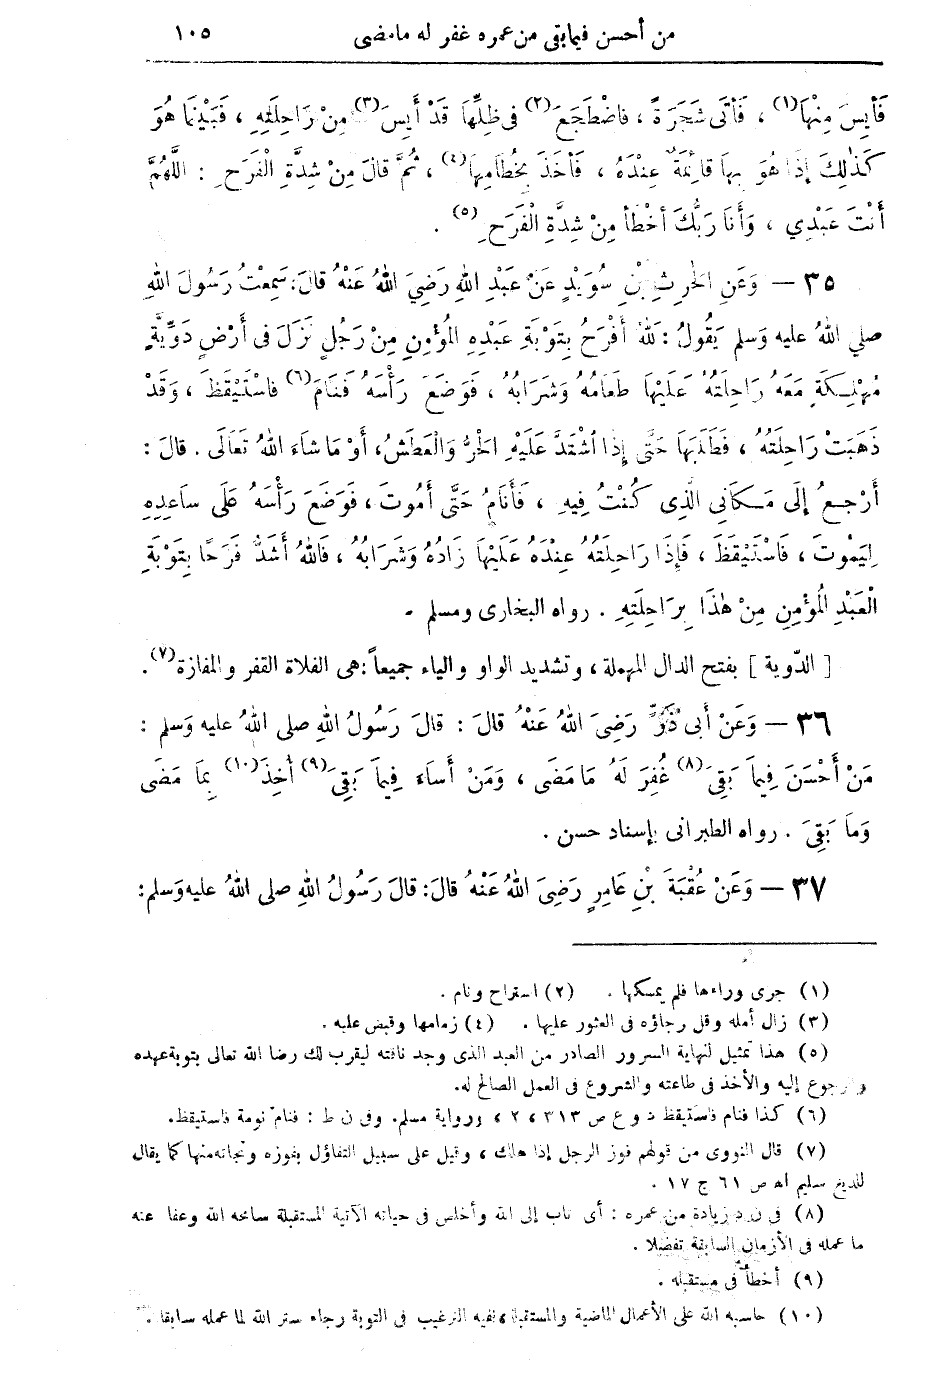 من أحسن فيما بقى من عمره غفر له ما مضى ١٠٥
فَأَيِسَ مِنْهَا(١) ، فَأَتَى شَجَرَةً ، فاضْطَجَعَ(٢) فى ظِلِّهَا قَدْ أَيِسَ(٣) مِنْ رَاحِلَتِهِ ، فَبَيْنَمَا هُوَ
كَذٰلِكَ إِذَا هُوَ بِهَا قائِمَةٌ عِنْدَهُ ، فَأَخَذَ بِخُطَامِهَا(٤) ، ثُمَّ قالَ مِنْ شِدَّةِ الْفَرَحِ : اللَّهُمَّ
أَنْتَ عَبْدِي ، وَأَنَا رَبُّكَ أَخْطَأَ مِنْ شِدَّةِ الْفَرَحِ(٥) .
٣٥ — وَعَنِ الحٰرِثِ بْنِ سُوَيْدٍ عَنْ عَبْدِ اللهِ رَضِيَ اللهُ عَنْهُ قالَ: سَمِعْتُ رَسُولَ اللهِ
صلي اللهُ عليه وَسلم يَقُولُ : لَلهُ أَفْرَحُ بِتَوْبَةِ عَبْدِهِ المُؤْمِنِ مِنْ رَجُلٍ نَزَلَ فى أَرْضٍ دَوِّيَّةٍ
مُهْلِكَةٍ مَعَهُ رَاحِلَتُهُ عَلَيْهَا طَعَامُهُ وَشَرَابُهُ ، فَوَضَعَ رَأْسَهُ فَنَامَ(٦) فاسْتَيْقَظَ ، وَقَدْ
ذَهَبَتْ رَاحِلَتُهُ ، فَطَلَبَهَا حَتَّى إِذَا اشْتَدَّ عَلَيْهِ الحَرُّ وَالْعَطَشُ، أَوْ مَا شَاءَ اللهُ تَعَالَى . قالَ :
أَرْجِعُ إِلَى مَكَانِي الَّذِي كُنْتُ فِيهِ ، فَأَنَامُ حَتَّى أَمُوتَ ، فَوَضَعَ رَأْسَهُ عَلَى سَاعِدِهِ
لِيَمُوتَ ، فَاسْتَيْقَظَ ، فَإِذَا رَاحِلَتُهُ عِنْدَهُ عَلَيْهَا زَادُهُ وَشَرَابُهُ ، فَاللهُ أَشَدُّ فَرَحًا بِتَوْبَةِ
الْعَبْدِ المُؤْمِنِ مِنْ هٰذَا بِرَاحِلَتِهِ . رواه البخارى ومسلم -
[ الدّوية ] بفتح الدال المهملة ، وتشديد الواو والياء جميعاً : هى الفلاة القفر والمفازة(٧).
٣٦ — وَعَنْ أَبى ذَرٍّ رَضِيَ اللهُ عَنْهُ قالَ : قالَ رَسُولُ اللهِ صلى اللهُ عليه وَسلم :
مَنْ أَحْسَنَ فِيمَا بَقِيَ(٨) غُفِرَ لَهُ مَا مَضَى ، وَمَنْ أَسَاءَ فِيمَا بَقِيَ(٩) أُخِذَ(١٠) بِمَا مَضَى
وَمَا بَقِيَ . رواه الطبرانى بإسناد حسن .
٣٧ — وَعَنْ عُقْبَةَ بْنِ عَامِرٍ رَضِيَ اللهُ عَنْهُ قالَ: قالَ رَسُولُ اللهِ صلى اللهُ عليه وَسلم:
(١) جرى وراءها فلم يمسكها . (٢) استراح ونام .
(٣) زال أمله وقل رجاؤه فى العثور عليها . (٤) زمامها وقبض عليه .
(٥) هذا تمثيل لنهاية السرور الصادر من العبد الذى وجد ناقته ليقرب لك رضا الله تعالى بتوبة عبده
والرجوع إليه والأخذ فى طاعته والشروع فى العمل الصالح له.
(٦) كذا فنام فاستيقظ د و ع ص ٣١٣ ، ٢ ، ورواية مسلم. وفى ن ط : فنام نومة فاستيقظ.
(٧) قال النووى من قولهم فوز الرجل إذا هلك ، وقيل على سبيل التفاؤل بفوزه ونجاته منها كما يقال
للديغ سليم اه ص ٦١ ج ١٧ .
(٨) فى ن د زيادة من عمره : أى تاب إلى الله وأخلص فى حياته الآتية المستقبلة سامحه الله وعفا عنه
ما عمله فى الأزمان السابقة تفضلا .
(٩) أخطأ فى مستقبله .
(١٠) حاسبه الله على الأعمال الماضية والمستقبلة ففيه الترغيب فى التوبة رجاء ستر الله لما عمله سابقا .